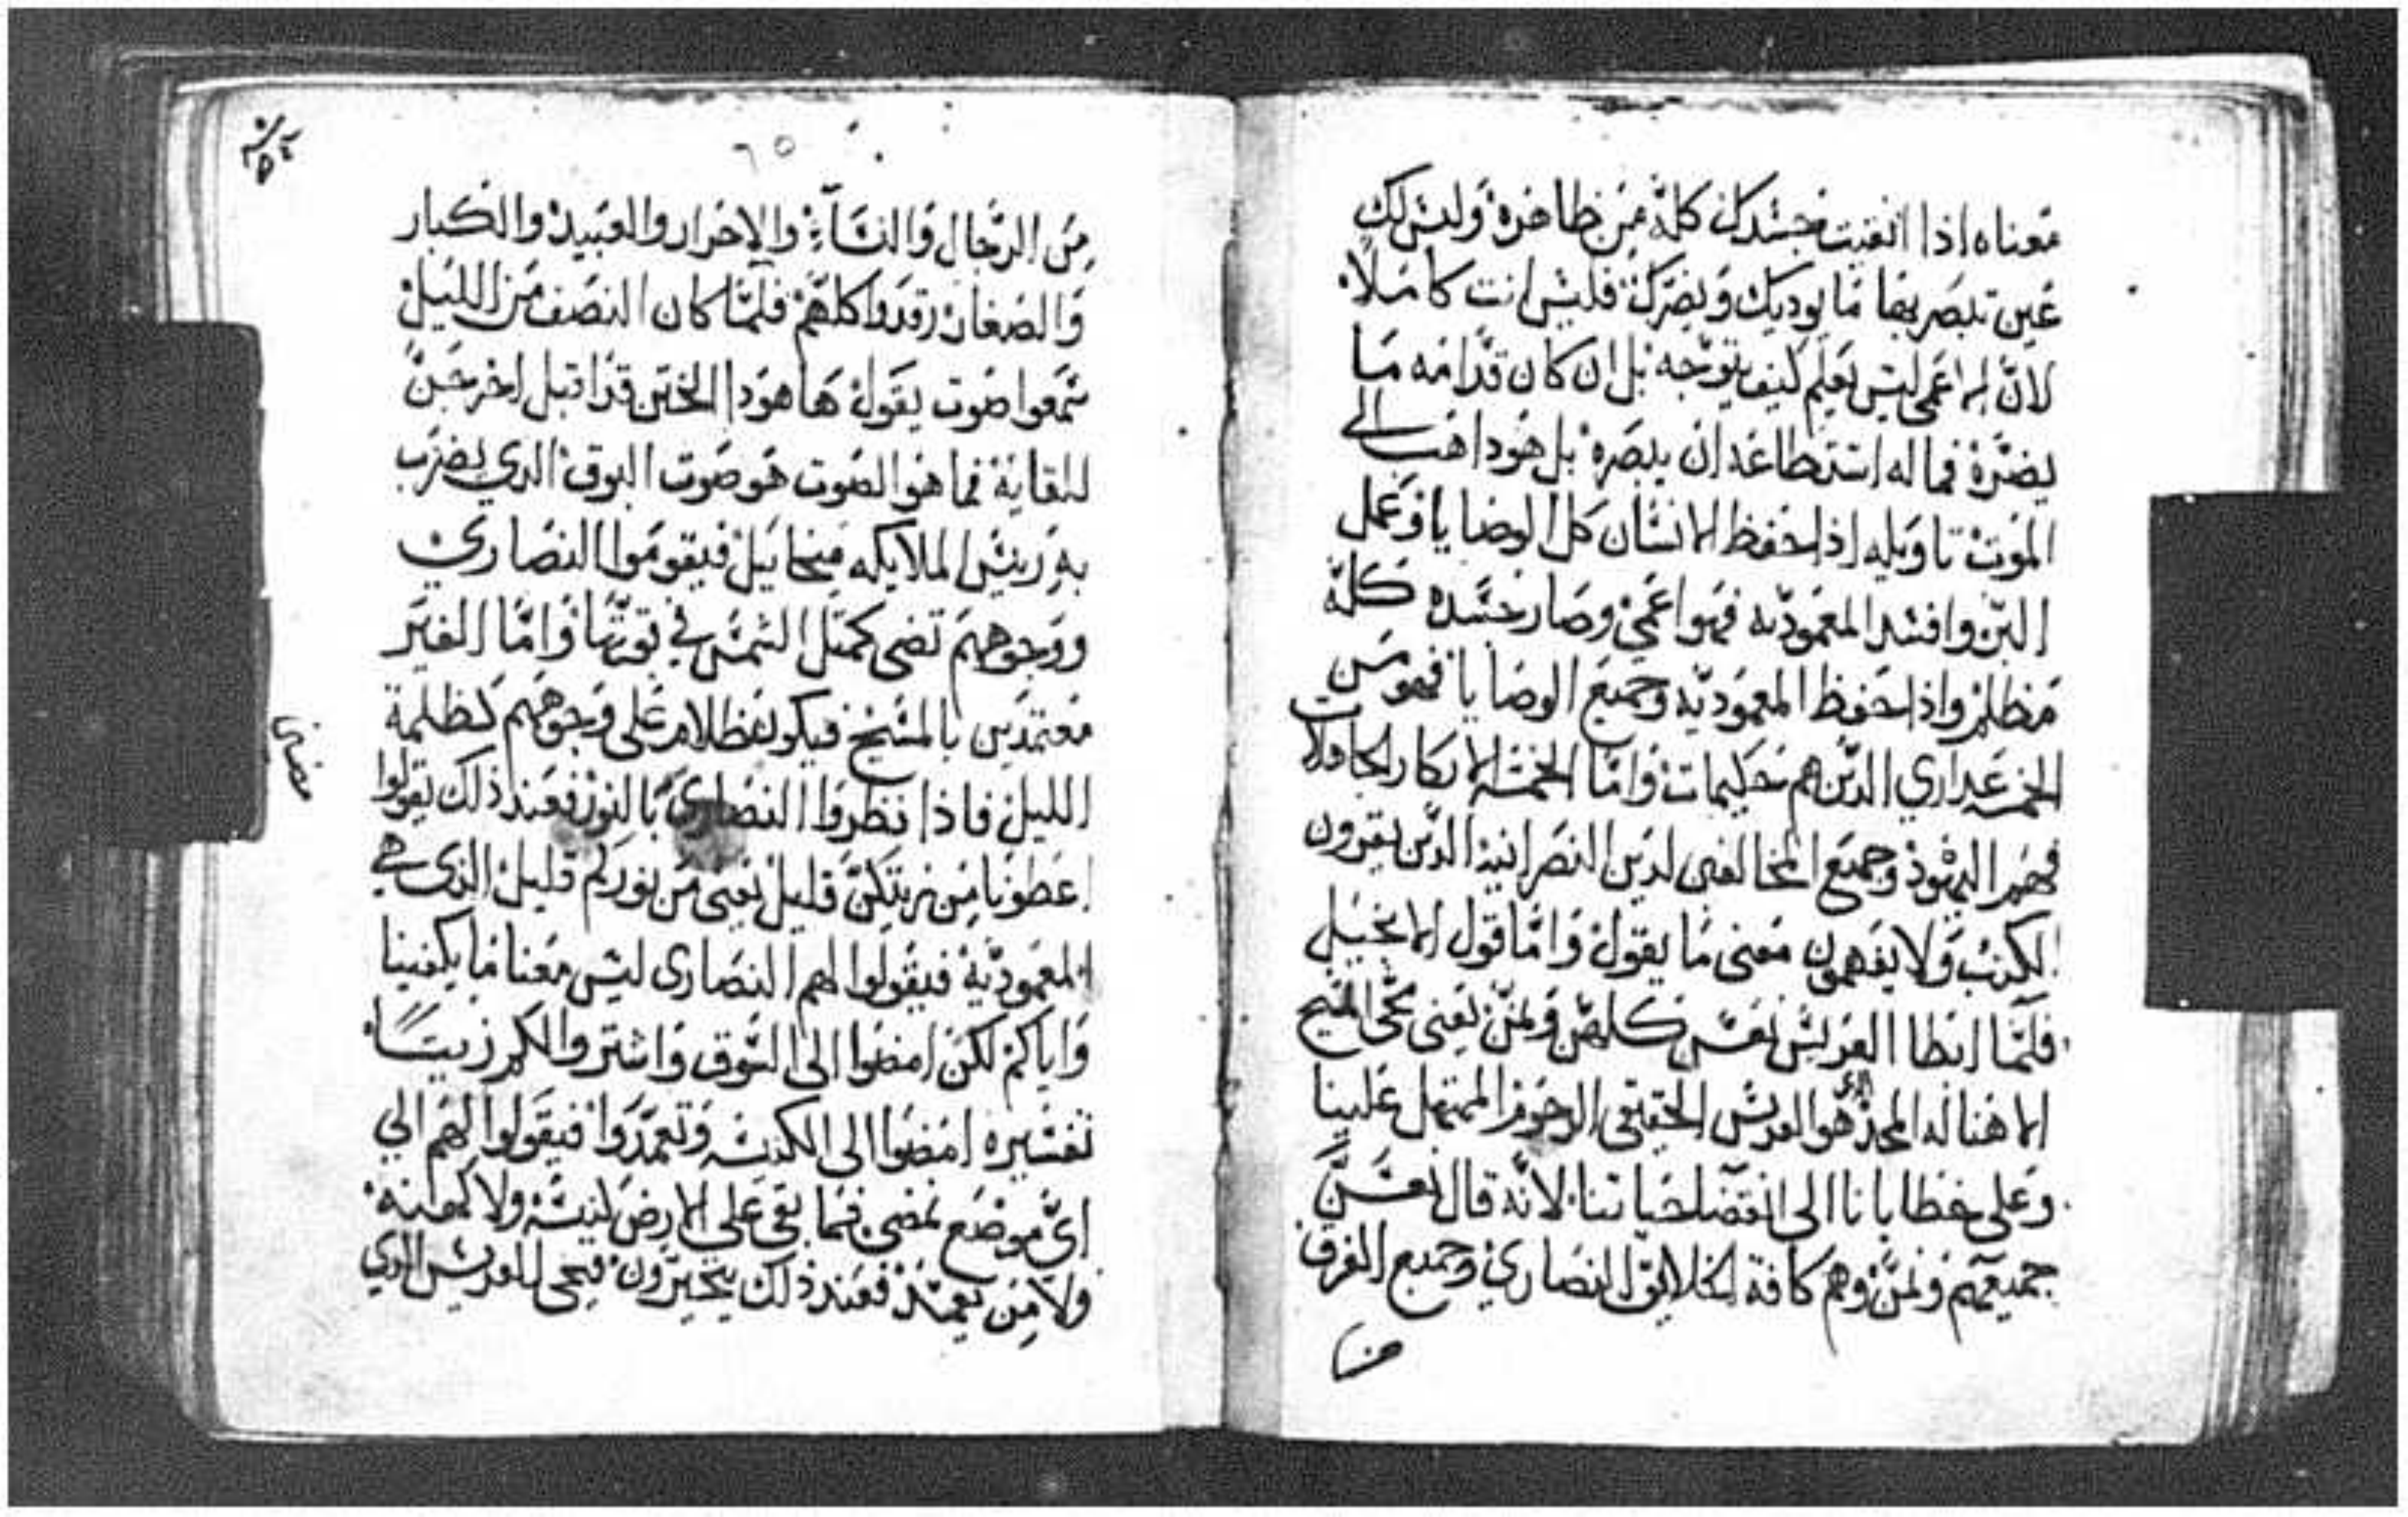 معناه اذا انقيت جسدك كله من ظاهره وليس لك
عين تبصر بها ما يوديك ويضرك فليس انت كاملا
لان الاعمى ليس يعلم كيف يتوجه بل ان كان قدامه ما
يضره فما له استطاعه ان يبصره بل هو داهب الى
الموت تاويله اذا حفظ الانسان كل الوصايا وعمل
البر وافسد المعموديه فهو اعمى وصار جسده كله
مظلم واذا حفظ المعموديه وجميع الوصايا فهو من
الخمس عداري الدين هم حكيمات واما الخمسه الابكار الجاهلات
فهم اليهود وجميع المخالفين لدين النصرانيه الدين يقرون
الكتب ولا يفهمون معنى ما يقول واما قول الانجيل
فلما ابطا العريس نعس كلهن ونمن يعني مجي المسيح
الاهنا له المجد الدي هو العريس الحقيقي الرحوم المتمهل علينا
وعلى خطايانا الى انقضا حياتنا لانه قال نعسن
جميعهم ونمن وهم كافة الخلايق النصاري وجميع الفرق
من
٦٥
من الرجال والنسآء والاحرار والعبيد والكبار
والصغار رقدوا كلهم فلما كان النصف من الليل
سمعوا صوت يقول ها هودا الختن قد اقبل اخرجن
للقايه فما هو الصوت هو صوت البوق الدي يضرب
به رييس الملايكه ميخاييل فيقوموا النصاري
ووجوههم تضي كمتل الشمس في قوتها واما الغير
معتمدين بالمسيح فيكون ظلام على وجوههم كظلمة
الليل فاذا نظروا النصارى بالنور فعند ذلك يقولوا
اعطونا من زيتكن قليل يعني من نوركم قليل الذى هي
المعموديه فيقولوا لهم النصارى ليس معنا ما يكفينا
واياكم لكن امضوا الى السوق واشتروا لكم زيتا
تفسيره امضوا الى الكنيسه وتعمدوا فيقولوا لهم الي
اي موضع نمضي فما بقي على الارض كنيسه ولا كهنه
ولا من يعمد فعند ذلك يتحيرون فيجي العريس الدي